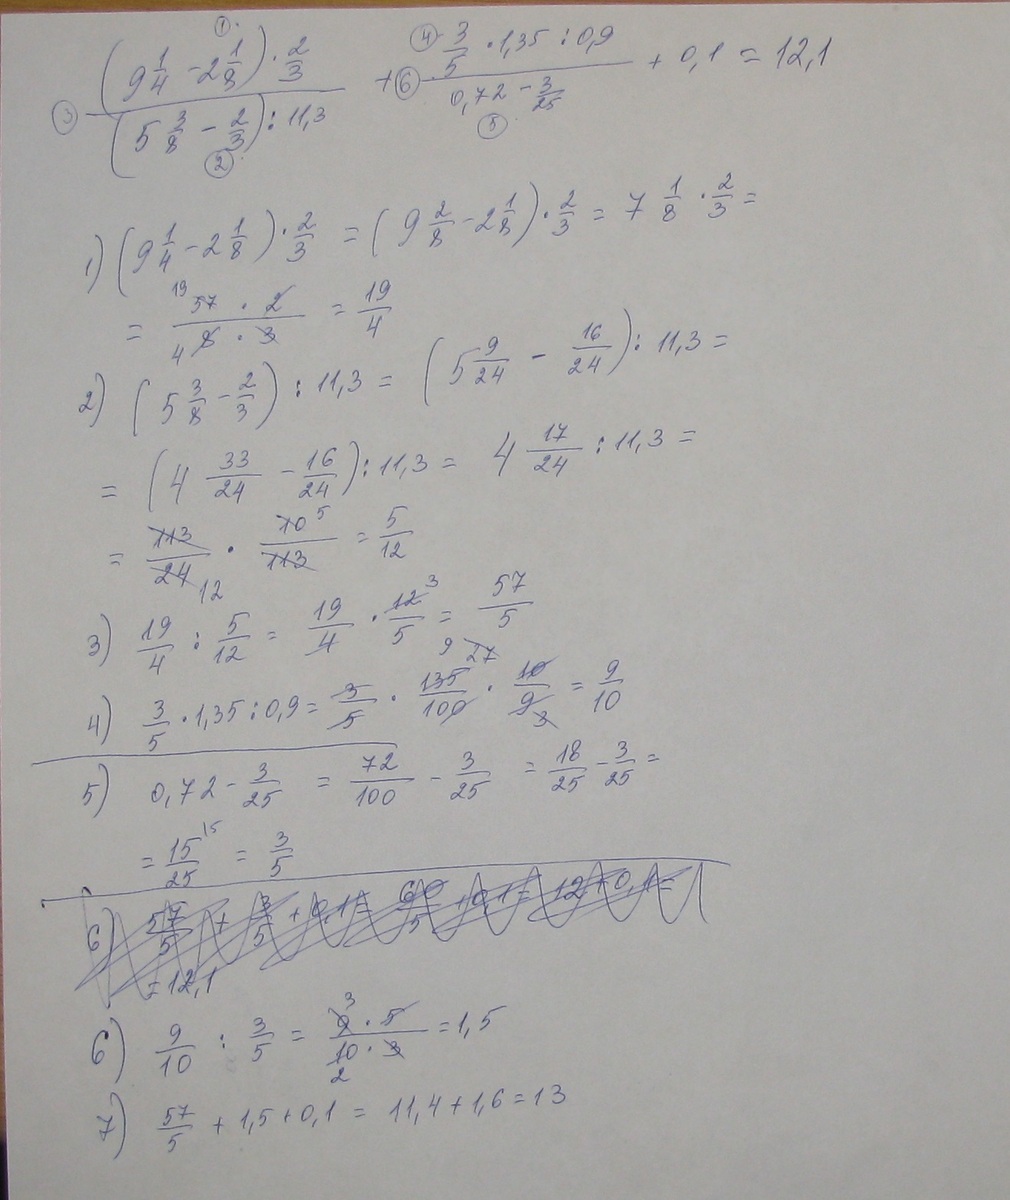 ③ ((9 1/4 - 2 1/8) · 2/3) / ((5 3/8 - 2/3) : 11,3) +⑥ (3/5 · 1,35 : 0,9) / (0,72 - 3/25) + 0,1 = 12,1
① ② ④ ⑤
1) (9 1/4 - 2 1/8) · 2/3 = (9 2/8 - 2 1/8) · 2/3 = 7 1/8 · 2/3 =
= (19 57 · 2) / (4 8 · 3) = 19/4
2) (5 3/8 - 2/3) : 11,3 = (5 9/24 - 16/24) : 11,3 =
= (4 33/24 - 16/24) : 11,3 = 4 17/24 : 11,3 =
= 113/24 12 · 10 5/113 = 5/12
3) 19/4 : 5/12 = 19/4 · 12 3/5 = 57/5
4) 3/5 · 1,35 : 0,9 = 3/5 · 9 27 135/100 · 10/9 3 = 9/10
5) 0,72 - 3/25 = 72/100 - 3/25 = 18/25 - 3/25 =
= 15/25 15 = 3/5
6) 57/5 + 3/5 + 0,1 = 60/5 + 0,1 = 12 + 0,1 =
= 12,1
6) 9/10 : 3/5 = (3 9 · 5) / (10 2 · 3) = 1,5
7) 57/5 + 1,5 + 0,1 = 11,4 + 1,6 = 13